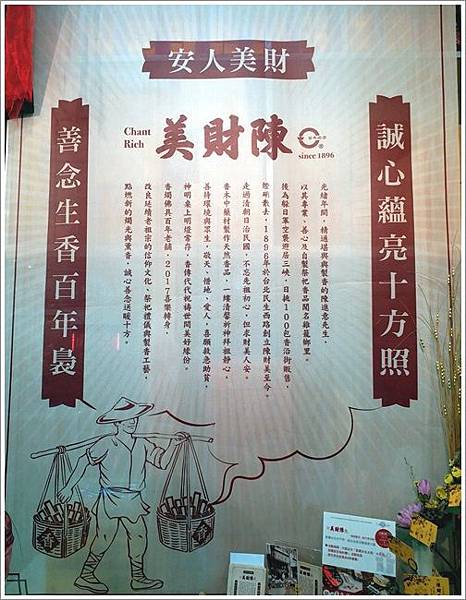 財美人安
誠心蘊亮十方照
善念生香百年裊
Chant
Rich
陳財美
®
since 1896
光緒年間，精通選與與製香的陳進來先生，
以其專業、善心及自製祭祀香品聞名雞籠鄉里。
後為躲日軍空襲遷居三峽，日挑100包香沿街販售，
賒銷散去，1896年於台北民生西路創立陳財美至今。
走過清朝日治民國，不忘先祖初心，但求財美人安。
香木中藥材製作天然香品，一縷清馨祈神拜祖靜心。
善待環境與眾生，敬天、惜地、愛人，喜願救急助貧。
神明桌上明燈常存，香傳代代祝禱世間美好緣份。
香燭佛具百年老舖，2017喜樂轉身，
改良延續老祖宗的信仰文化、祭祀禮儀與製香工藝，
點燃新的燭光與薰香，誠心善念送暖十方。
香
香
陳財美